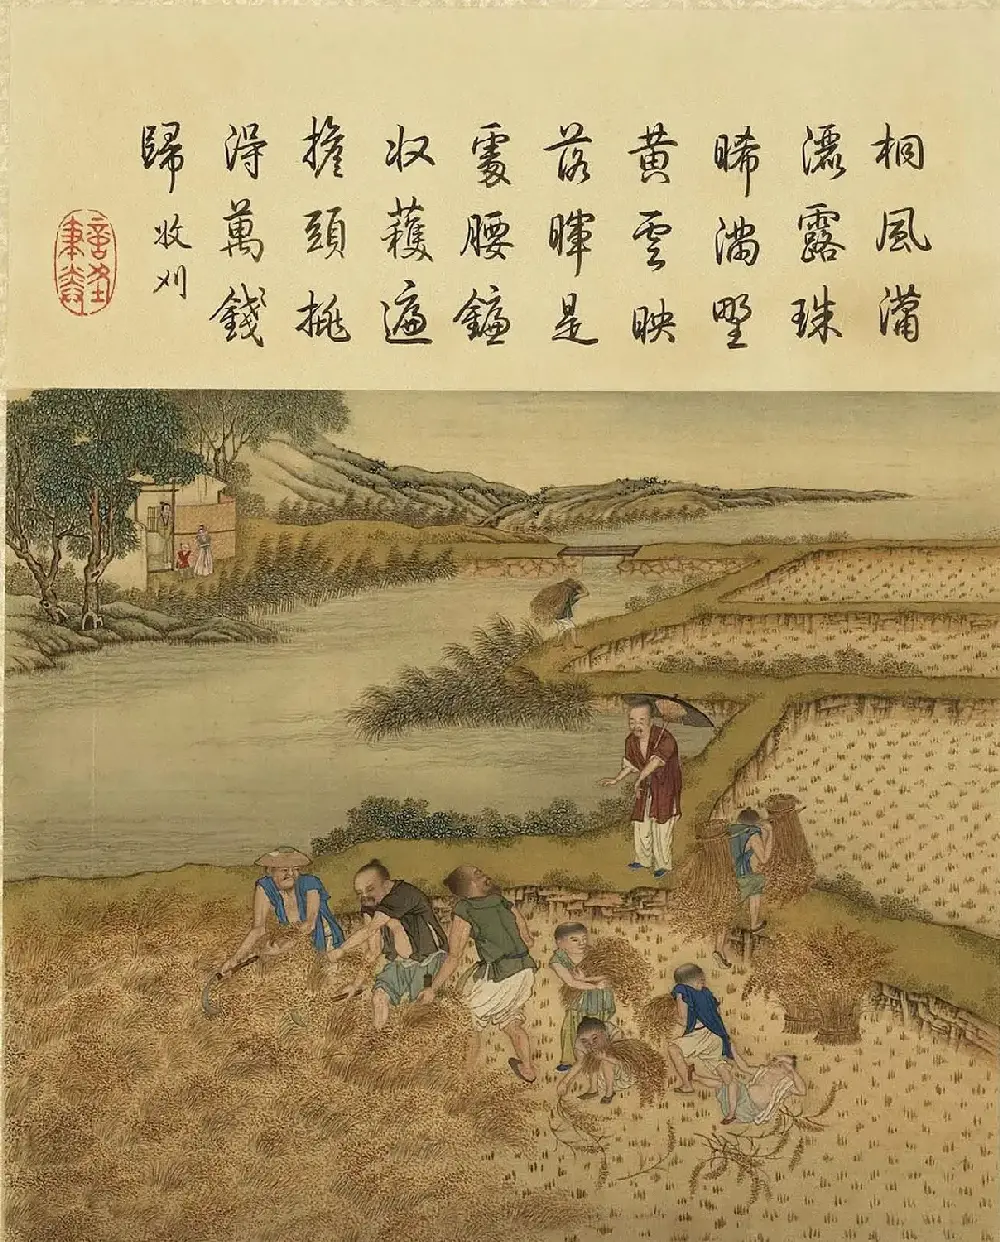 桐風瀟
灑露珠
晞滿野
黃雲映
落暉是
處腰鐮
收穫遍
擔頭挑
得萬錢
歸 收刈